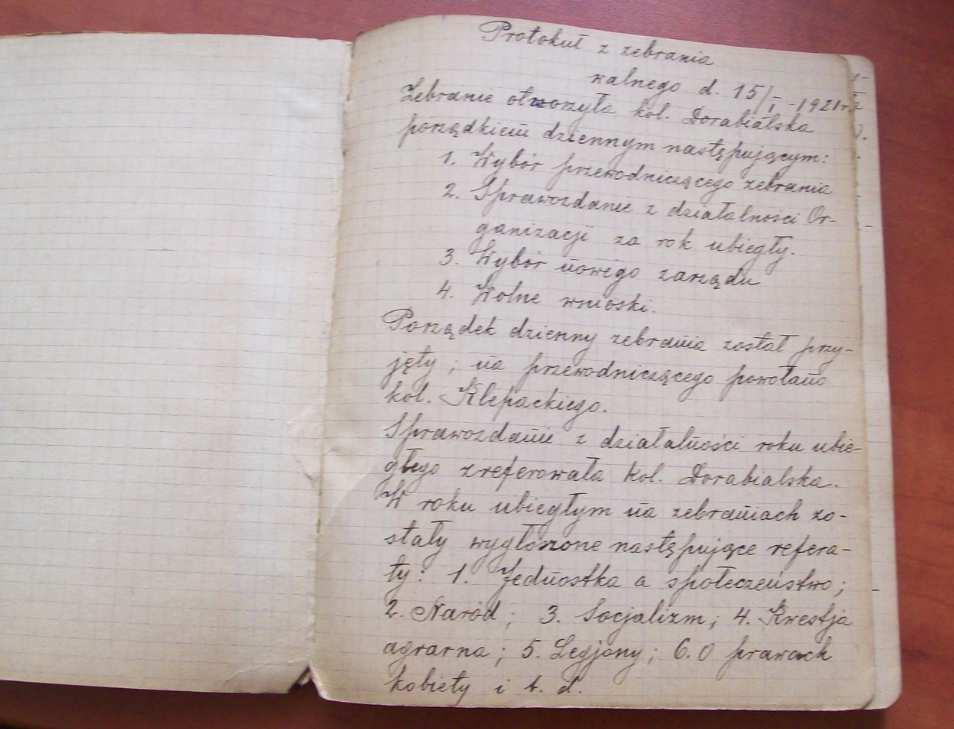 Protokuł z zebrania
walnego d. 15/I -1921 r.
Zebranie otworzyła kol. Dorabialska
porządkiem dziennym następującym:
1. Wybór przewodniczącego zebrania
2. Sprawozdanie z działalności Or-
ganizacji za rok ubiegły.
3. Wybór nowego zarządu
4. Wolne wnioski.
Porządek dzienny zebrania został przy-
jęty; na przewodniczącego powołano
kol. Klepackiego.
Sprawozdanie z działalności roku ubie-
głego zreferowała kol. Dorabialska.
W roku ubiegłym na zebraniach zo-
stały wygłoszone następujące refera-
ty: 1. Jednostka a społeczeństwo;
2. Naród; 3. Socjalizm; 4. Kwestja
agrarna; 5. Legjony; 6. O prawach
kobiety i t. d.